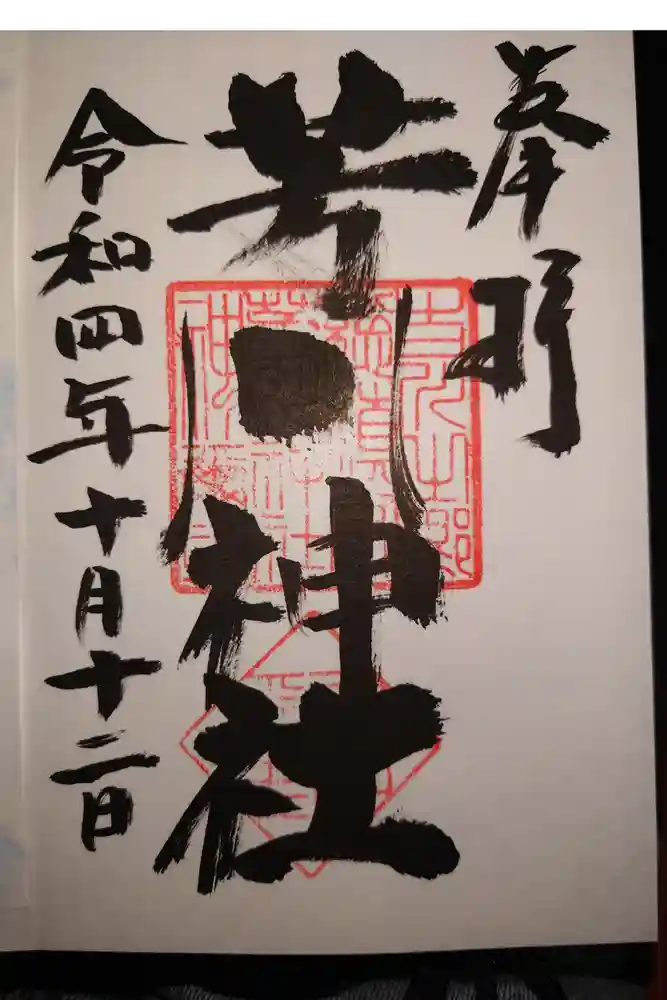 奉拝
芳川神社
令和四年十月十二日